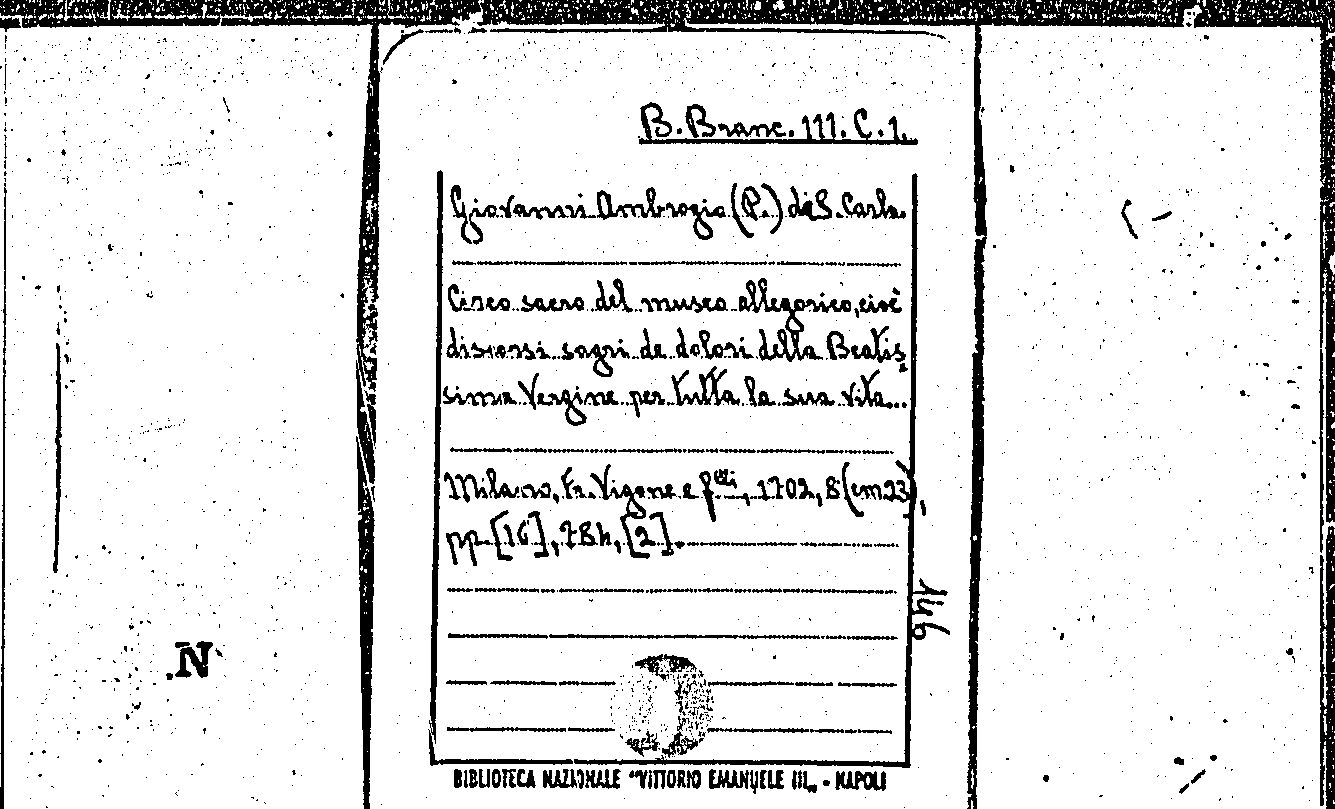 B. Branc. 111. C. 1.
Giovanni Ambrogio (P.) di S. Carlo.
Circo sacro del museo allegorico, cioè
discorsi sagri de dolori della Beatis
sima Vergine per tutta la sua vita...
Milano, Fr. Vigone e f.elli, 1702, 8 (cm 23),
pp. [16], 784, [2].
146
.N
BIBLIOTECA NAZIONALE "VITTORIO EMANUELE III„ - NAPOLI